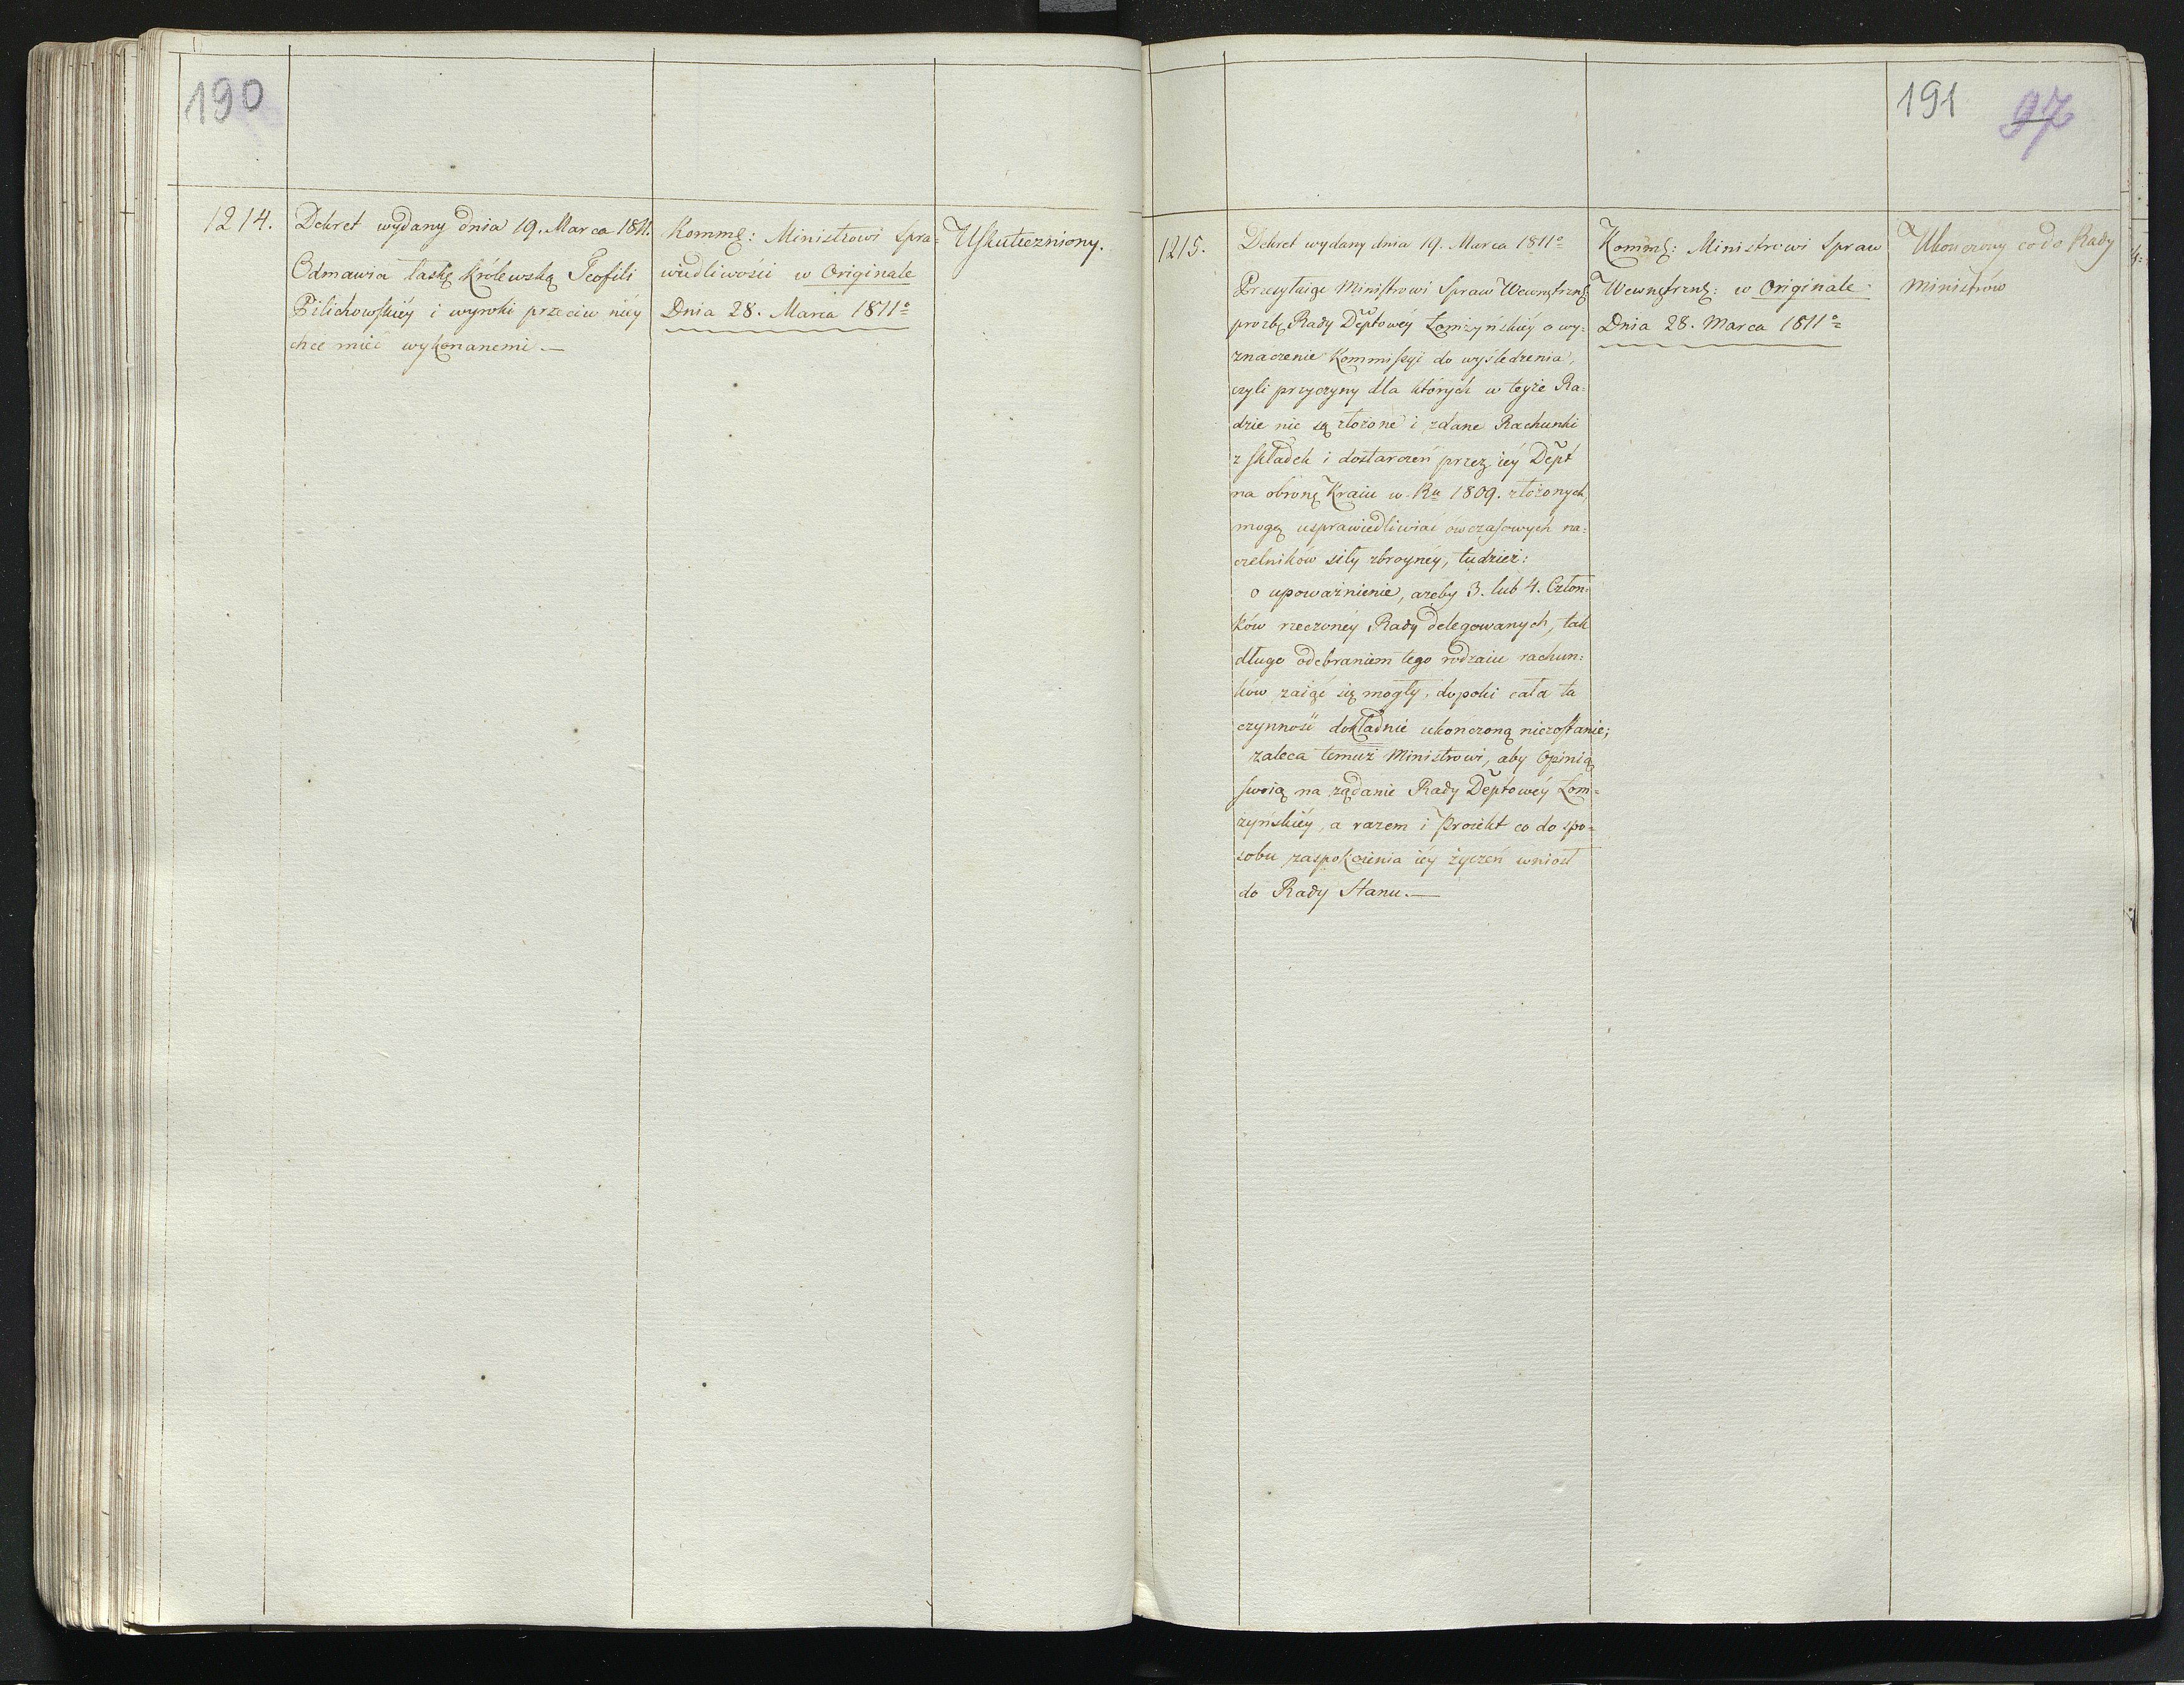 190
1214.
Dekret wydany dnia 19. Marca 1811.
Odmawia łaskę Królewską Teofili
Pilichowskiéy i wyroki przeciw niéy
chce mieć wykonanemi. —
Kommȩ: Ministrowi Spra=
wiedliwości w Originale
Dnia 28. Marca 1811º
Uskuteczniony.
191 97
1215.
Dekret wydany dnia 19. Marca 1811º
Przesyłaiąc Ministrowi Spraw Wewnętrznȩ
proźbę Rady Deptowéy Łomżyńskiéy o wy=
znaczenie Kommissyi do wyśledzenia,
czyli przyczyny dla których w teyże Ra=
dzie nie są złożone i zdane Rachunki
z składek i dostarczeń przez iéy Dept
na obronę Kraiu w Ru 1809. złożonych,
mogą usprawiedliwiać ówczasowych na=
czelników siły zbroynéy, tudzież:
o upoważnienie, ażeby 3. lub 4. Człon=
ków rzeczonéy Rady delegowanych, tak
długo odebraniem tego rodzaiu rachun=
ków zaiąć się mogły, dopoki cała ta
czynność dokładnie ukonczoną niezostanie;
zaleca temuż Ministrowi, aby Opinią
swoią na żądanie Rady Deptowéy Łom=
żyńskiéy, a razem i Proiekt co do spo=
sobu zaspokoienia iéy życzeń wniosł
do Rady Stanu. —
Kommȩ: Ministrowi Spraw
Wewnętrznȩ: w Originale
Dnia 28. Marca 1811º
Ukonczony co do Rady
Ministrów